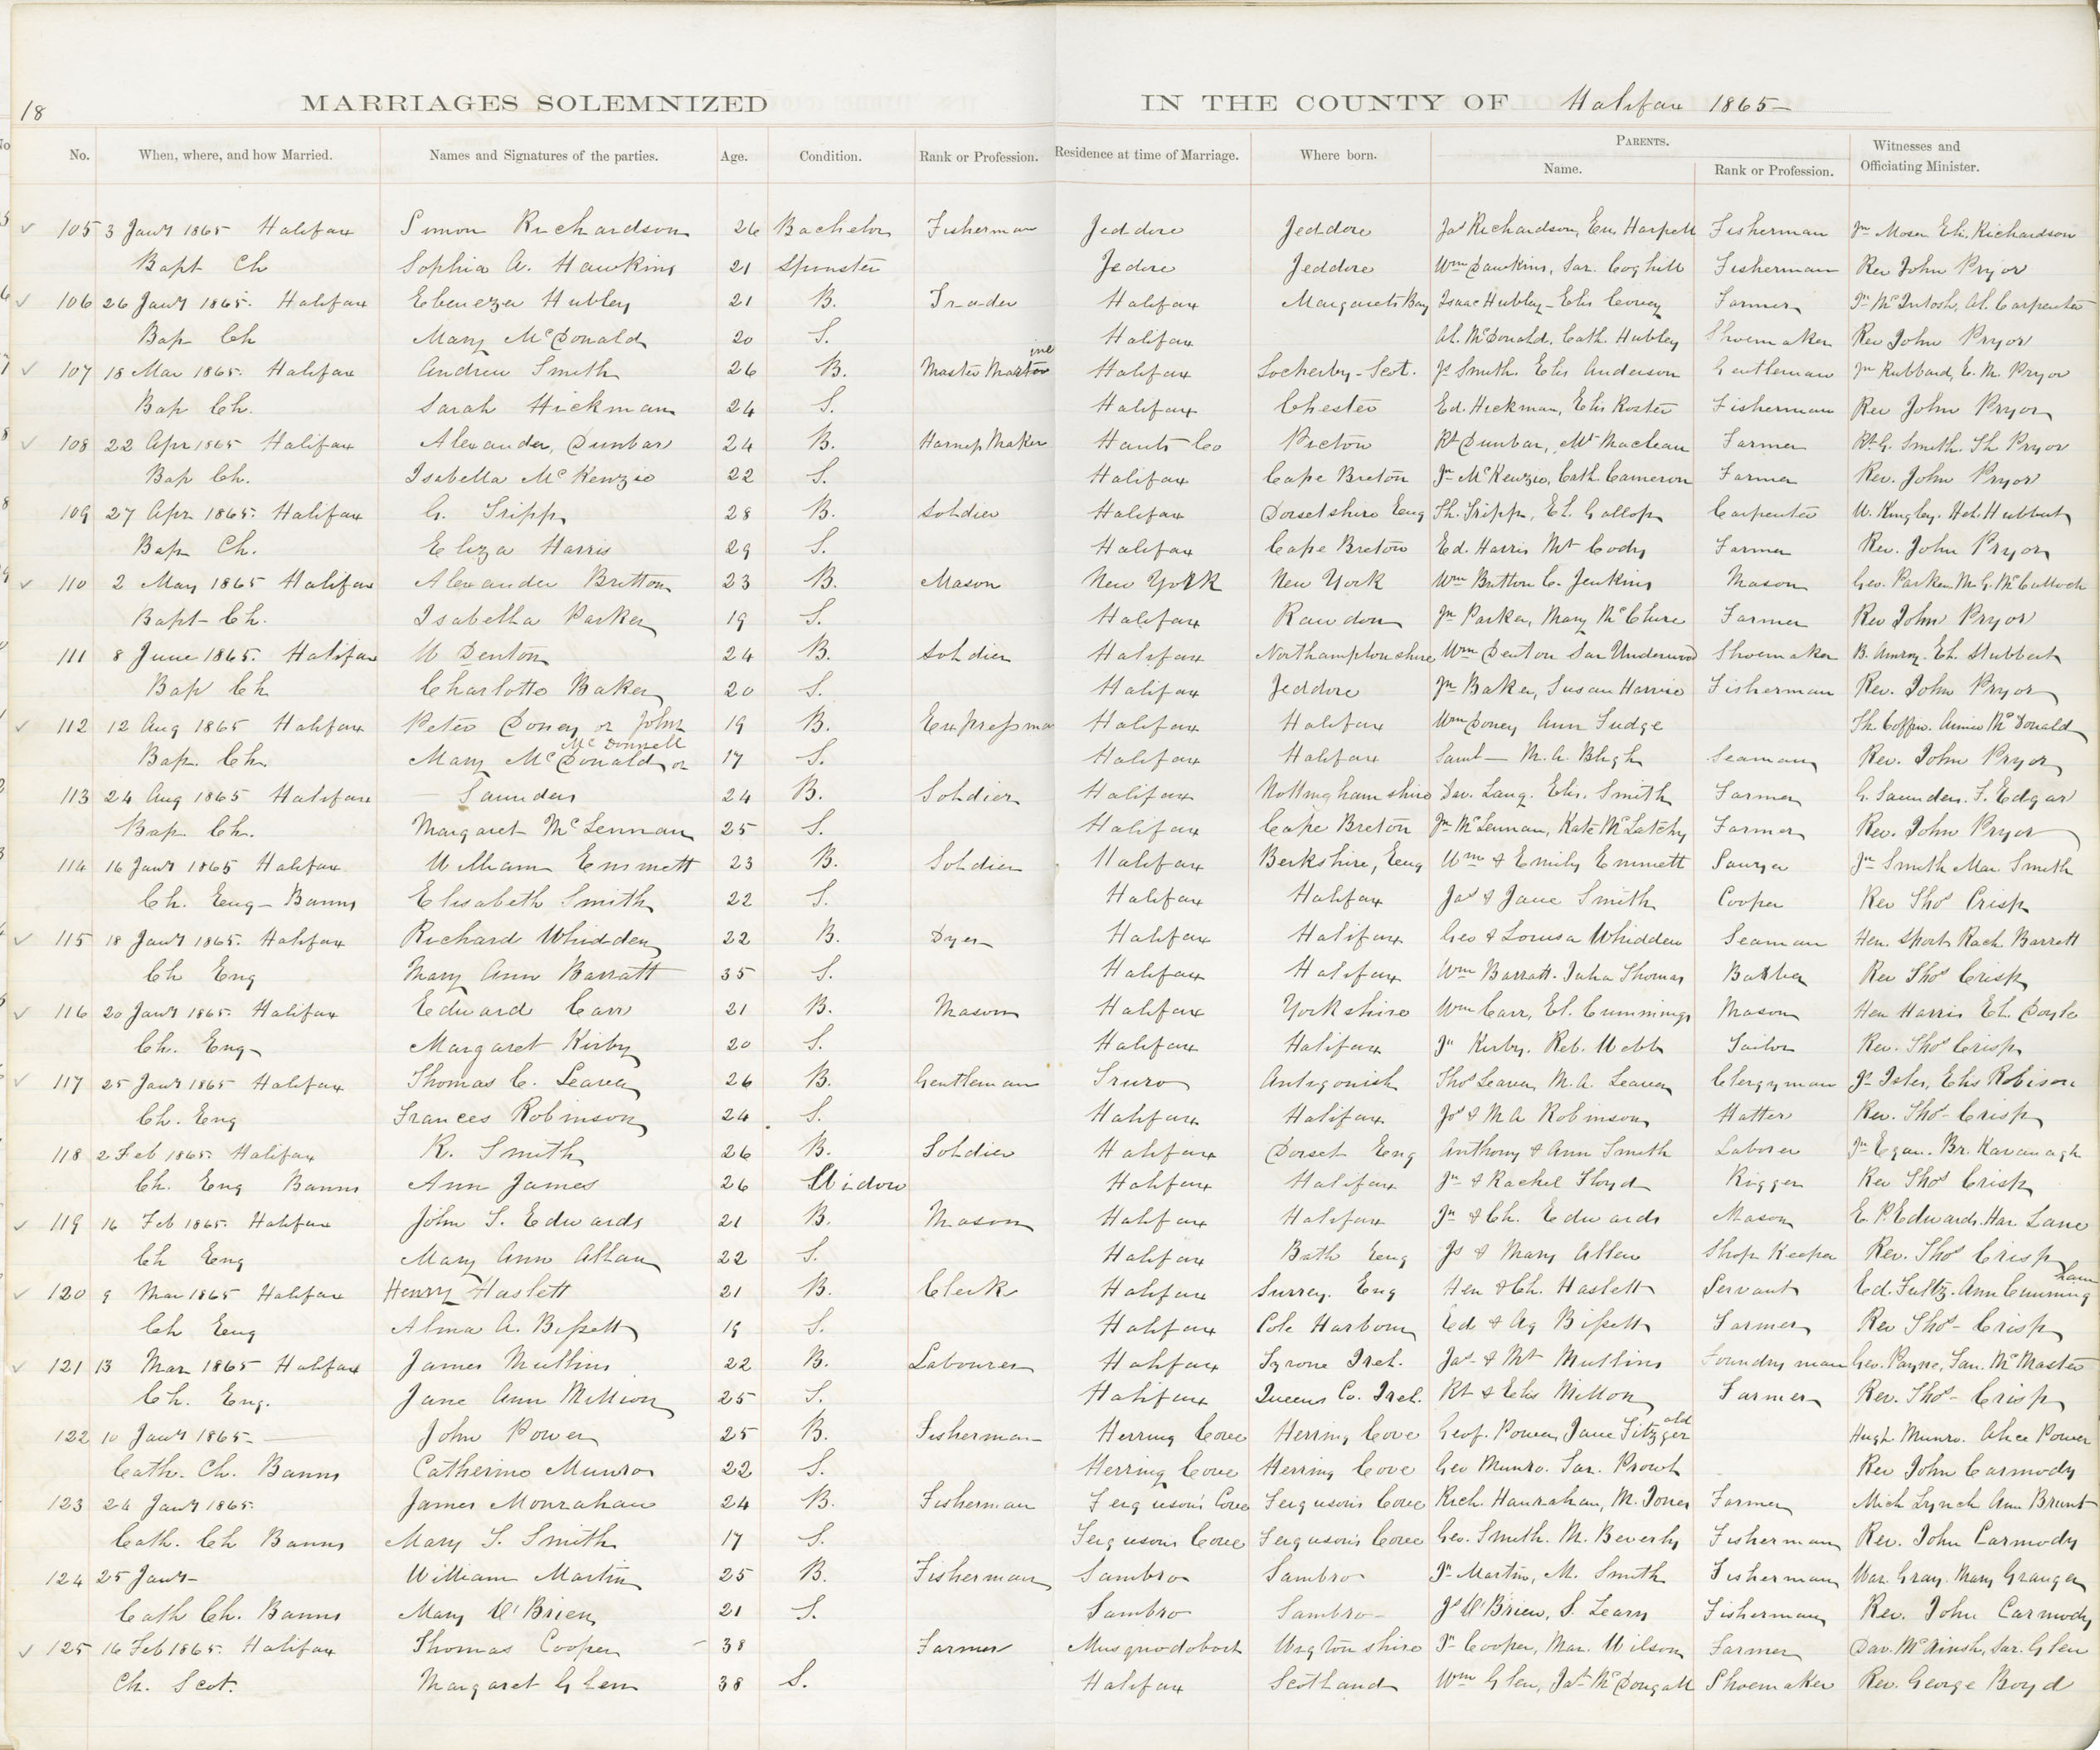 18 MARRIAGES SOLEMNIZED IN THE COUNTY OF Halifax 1865
No. When, where, and how Married. Names and Signatures of the parties. Age. Condition. Rank or Profession. Residence at time of Marriage. Where born. PARENTS. Name. Rank or Profession. Witnesses and Officiating Minister.
105 3 Jany 1865 Halifax Simon Richardson 26 Bachelor Fisherman Jeddore Jeddore Jas Richardson, Eu. Harpell Fisherman Jn Moser Eli. Richardson
Bapt Ch Sophia A. Hawkins 21 Spinster Jedore Jeddore Wm Dawkins, Sar. Coghill Fisherman Rev John Pryor
106 26 Jany 1865. Halifax Ebenezer Hubley 21 B. Trader Halifax Margarets Bay Isaac Hubley - Elis Covey Farmer Jn McIntosh, Al. Carpenter
Bap Ch Mary McDonald 20 S. Halifax Al. McDonald. Cath. Hubley Shoemaker Rev John Pryor
107 18 Mar 1865. Halifax Andrew Smith 26 B. Master Mariner Halifax Locherby - Scot. Js Smith. Elis Anderson Gentleman Jn Hubbard, E. M. Pryor
Bap Ch. Sarah Hickman 24 S. Halifax Chester Ed. Hickman, Elis Roster Fisherman Rev John Pryor
108 22 Apr 1865 Halifax Alexander Dunbar 24 B. Harness Maker Hants Co Pictou Rt Dunbar, Mt Maclean Farmer Rt G. Smith. Th Pryor
Bap Ch. Isabella McKenzie 22 S. Halifax Cape Breton Jn McKenzie, Cath Cameron Farmer Rev. John Pryor
109 27 Apr 1865. Halifax G. Tripp 28 B. Soldier Halifax Dorsetshire Eng Th. Tripp, El. Gallop Carpenter W. Kingley. Hel. Hubbert
Bap Ch. Eliza Harris 29 S. Halifax Cape Breton Ed. Harris Mt Cody Farmer Rev. John Pryor
110 2 May 1865 Halifax Alexander Britton 23 B. Mason New York New York Wm Britton C. Jenkins Mason Geo. Parker M. G. McCulloch
Bapt - Ch. Isabella Parker 19 S. Halifax Rawdon Jn Parker, Mary McClure Farmer Rev John Pryor
111 8 June 1865. Halifax W Denton 24 B. Soldier Halifax Northamptonshire Wm Denton Sar Underwood Shoemaker B. Amroy. El. Stubbert
Bap Ch Charlotte Baker 20 S. Halifax Jeddore Jn Baker, Susan Harvie Fisherman Rev. John Pryor
112 12 Aug 1865 Halifax Peter Doney or John 19 B. Expressman Halifax Halifax Wm Doney Ann Judge Th. Coffin. Annie McDonald
Bap. Ch. Mary McDonald or McDonnell 17 S. Halifax Halifax Saml - M. A. Bligh Seaman Rev. John Pryor
113 24 Aug 1865 Halifax - Saunders 24 B. Soldier Halifax Nottinghamshire Dav. Lang. Elis. Smith Farmer G. Saunders. F. Edgar
Bap Ch. Margaret McLennan 25 S. Halifax Cape Breton Jn McLennan, Kate McLatchy Farmer Rev. John Pryor
114 16 Jany 1865 Halifax William Emmett 23 B. Soldier Halifax Berkshire, Eng Wm & Emily Emmett Sawyer Jn Smith Mar Smith
Ch. Eng - Banns Elisabeth Smith 22 S. Halifax Halifax Jas & Jane Smith Cooper Rev Thos Crisp
115 18 Jany 1865. Halifax Richard Whidden 22 B. Dyer Halifax Halifax Geo & Louisa Whidden Seaman Hen. Sports Rach. Barrett
Ch Eng Mary Ann Barratt 35 S. Halifax Halifax Wm Barratt. Julia Thomas Barber Rev Thos Crisp
116 20 Jany 1865. Halifax Edward Carr 21 B. Mason Halifax Yorkshire Wm Carr, El. Cummings Mason Hen Harris El. Doyle
Ch. Eng - Margaret Kirby 20 S. Halifax Halifax Jn Kirby. Reb. Webb Tailor Rev. Thos Crisp
117 25 Jany 1865 Halifax Thomas C. Leaver 26 B. Gentleman Truro Antigonish Thos Leaver, M. A. Leaver Clergyman Js Isler, Elis Robison
Ch. Eng Frances Robinson 24 S. Halifax Halifax Jos & M A Robinson Hatter Rev. Thos Crisp
118 2 Feb 1865. Halifax R. Smith 26 B. Soldier Halifax Dorset Eng Anthony & Ann Smith Laborer Jn Egan. Br. Kavanagh
Ch. Eng Banns Ann James 26 Widow Halifax Halifax Jn & Rachel Floyd Rigger Rev Thos Crisp
119 16 Feb 1865. Halifax John T. Edwards 21 B. Mason Halifax Halifax Jn & Ch. Edwards Mason E. P. Edwards. Har Lane
Ch Eng Mary Ann Allan 22 S. Halifax Bath Eng Js & Mary Allen Shop Keeper Rev. Thos Crisp
120 9 Mar 1865 Halifax Henry Haslett 21 B. Clerk Halifax Surrey. Eng Hen & Ch. Haslett Servant Ed. Fultz. Ann Cunningham
Ch Eng Alma A. Bissett 19 S. Halifax Cole Harbour Ed & Ag Bissett Farmer Rev Thos - Crisp
121 13 Mar 1865 Halifax James Mullins 22 B. Labourer Halifax Tyrone Irel. Jas & Mt Mullins Foundry man Geo. Payne, Fan. McMaster
Ch. Eng. Jane Ann Million 25 S. Halifax Queens Co. Irel. Rt & Elis Millon Farmer Rev. Thos - Crisp
122 10 Jany 1865 - John Power 25 B. Fisherman Herring Cove Herring Cove Geof. Power, Jane Fitzgerald Hugh Munro. Alice Power
Cath. Ch. Banns Catherine Munro 22 S. Herring Cove Herring Cove Geo Munro. Sar. Prowt Rev John Carmody
123 24 Jany 1865. James Monrahan 24 B. Fisherman Ferguson's Cove Ferguson's Cove Rich. Hanrahan, M. Jones Farmer Mich Lynch Ann Brunt
Cath. Ch Banns Mary S. Smith 17 S. Ferguson's Cove Ferguson's Cove Geo. Smith. M. Beverly Fisherman Rev. John Carmody
124 25 Jany - William Martin 25 B. Fisherman Sambro Sambro Jn Martin, M. Smith Fisherman War. Gray. Mary Granger
Cath Ch. Banns Mary O'Brien 21 S. Sambro Sambro Js O'Brien, S. Leary Fisherman Rev. John Carmody
125 16 Feb 1865. Halifax Thomas Cooper 38 Farmer Musquodoboit Wigtonshire Jn Cooper, Mar. Wilson Farmer Dav. McAinsh, Sar. Glen
Ch. Scot. Margaret Glen 38 S. Halifax Scotland Wm Glen, Jat McDougall Shoemaker Rev. George Boyd